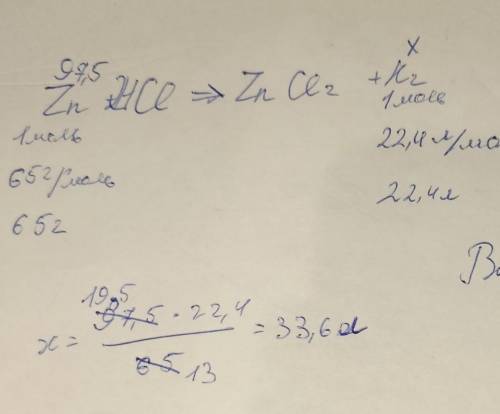 97,5 x
Zn + 2HCl => ZnCl₂ + H₂
1 моль 1 моль
65 г/моль 22,4 л/мо
65 г 22,4 л
19,5
x = 97,5 · 22,4 / 65 13 = 33,6 л